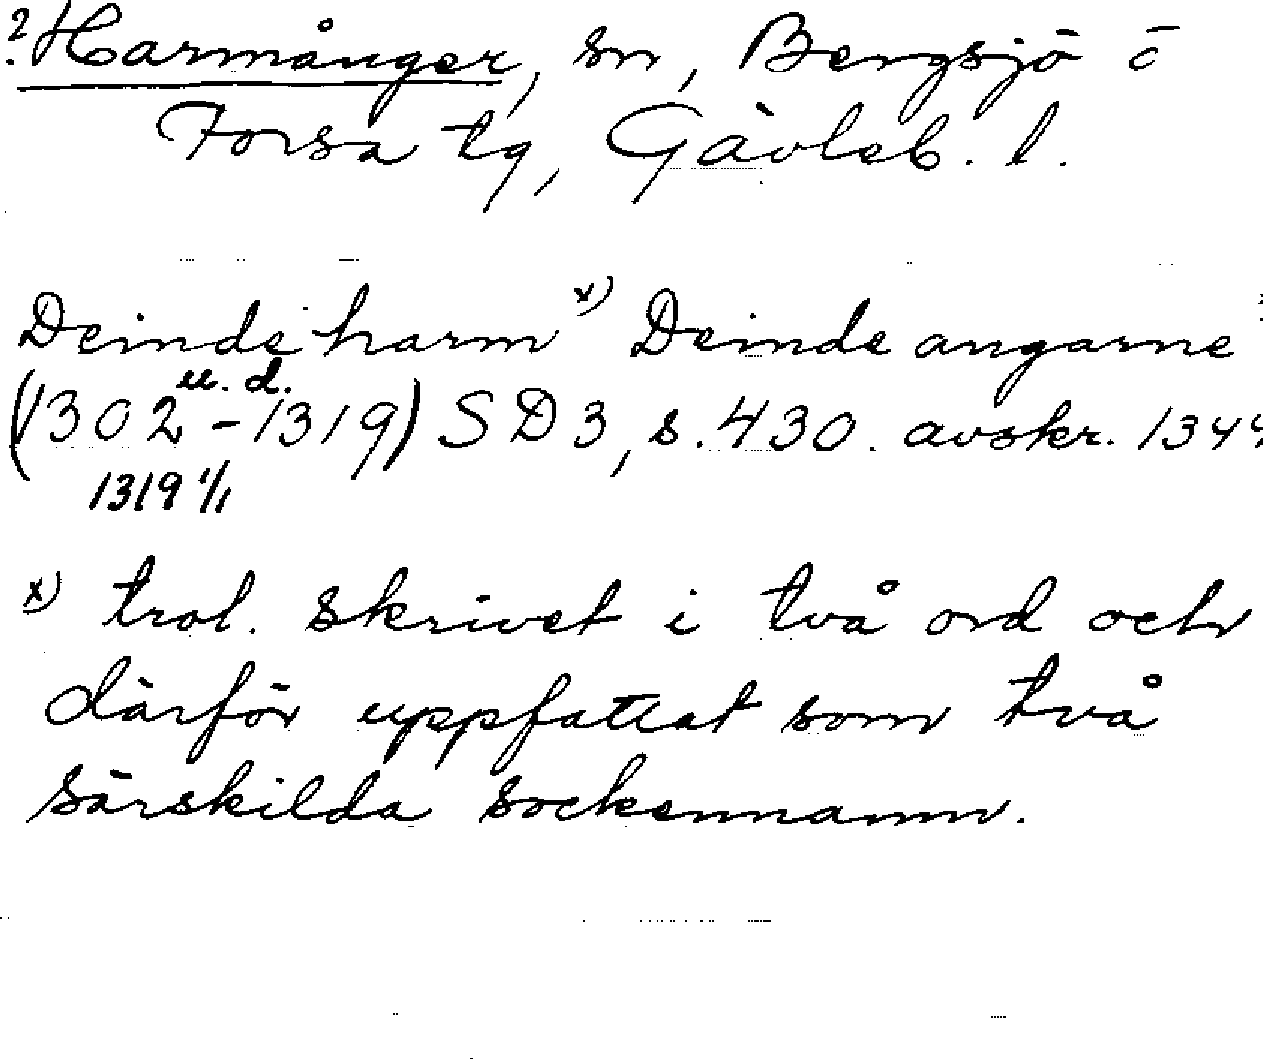 ? Harmånger, sn, Bergsjö o
Forsa tg, Gävleb. l.
Deinde harm x) Deinde angarne
u. d.
(1302 - 1319) SD 3, s. 430. avskr. 1344
1319 1/1
x) trol. skrivet i två ord och
därför uppfattat som två
särskilda sockennamn.